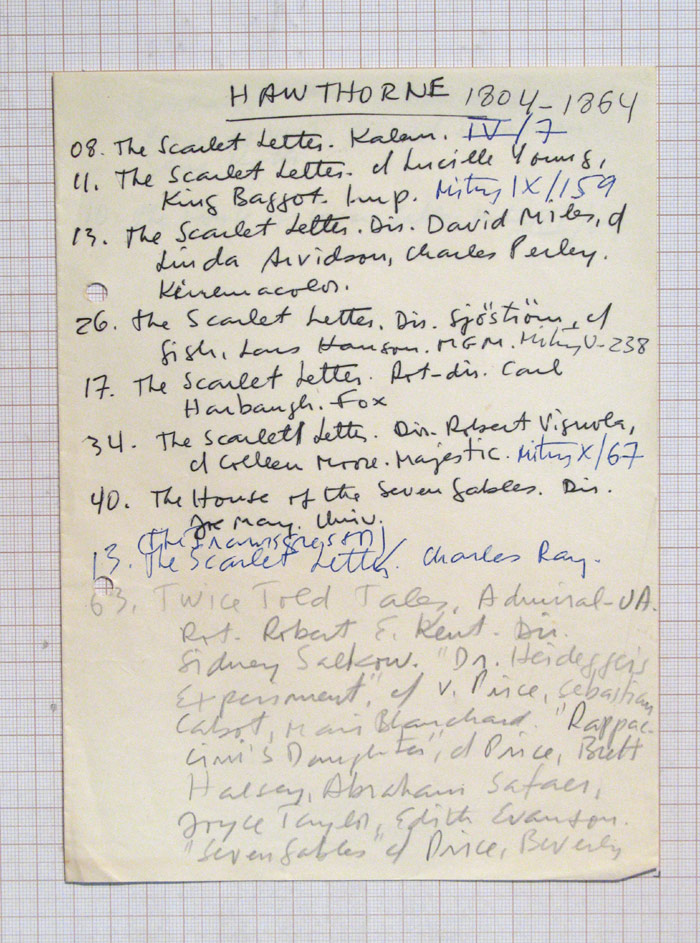 HAWTHORNE 1804-1864
08. The Scarlet Letter. Kalem. IV/7
11. The Scarlet Letter. d Lucille Young,
King Baggot. Imp. Mitry IX/159
13. The Scarlet Letter. Dir. David Miles, d
Linda Arvidson, Charles Perley.
Kinemacolor.
26. The Scarlet Letter. Dir. Sjöström, d
Gish, Lars Hanson. MGM. Mitry V-238
17. The Scarlet Letter. Rot-dir. Carl
Harbaugh. Fox
34. The Scarlett Letter. Dir. Robert Vignola,
d Colleen Moore. Majestic. Mitry X/67
40. The House of the Seven Gables. Dir.
Joe May. Univ.
(The Transgressor)
13. The Scarlet Letter. Charles Ray.
63. Twice Told Tales, Admiral-UA.
Rot. Robert E. Kent. Dir.
Sidney Salkow. "Dr. Heidegger's
Experiment", d V. Price, Sebastian
Cabot, Mari Blanchard. "Rappac-
cini's Daughter", d Price, Brett
Halsey, Abraham Sofaer,
Joyce Taylor, Edith Evanson.
"Seven Gables" d Price, Beverly